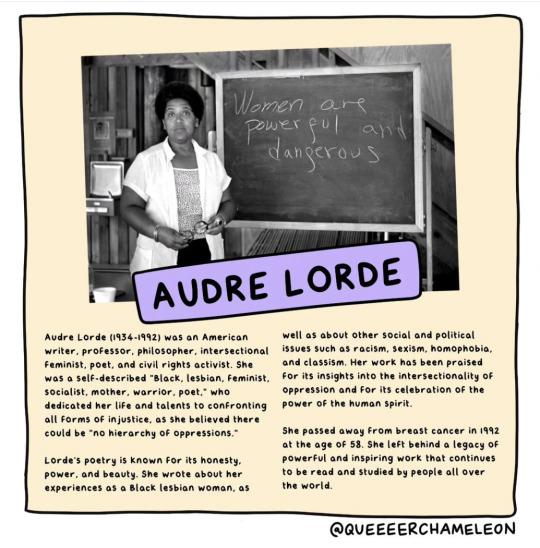 Women are
powerful and
dangerous
AUDRE LORDE
Audre Lorde (1934-1992) was an American
writer, professor, philosopher, intersectional
feminist, poet, and civil rights activist. She
was a self-described "Black, lesbian, feminist,
socialist, mother, warrior, poet," who
dedicated her life and talents to confronting
all forms of injustice, as she believed there
could be "no hierarchy of oppressions."
Lorde's poetry is known for its honesty,
power, and beauty. She wrote about her
experiences as a Black lesbian woman, as
well as about other social and political
issues such as racism, sexism, homophobia,
and classism. Her work has been praised
for its insights into the intersectionality of
oppression and for its celebration of the
power of the human spirit.
She passed away from breast cancer in 1992
at the age of 58. She left behind a legacy of
powerful and inspiring work that continues
to be read and studied by people all over
the world.
@QUEEEERCHAMELEON